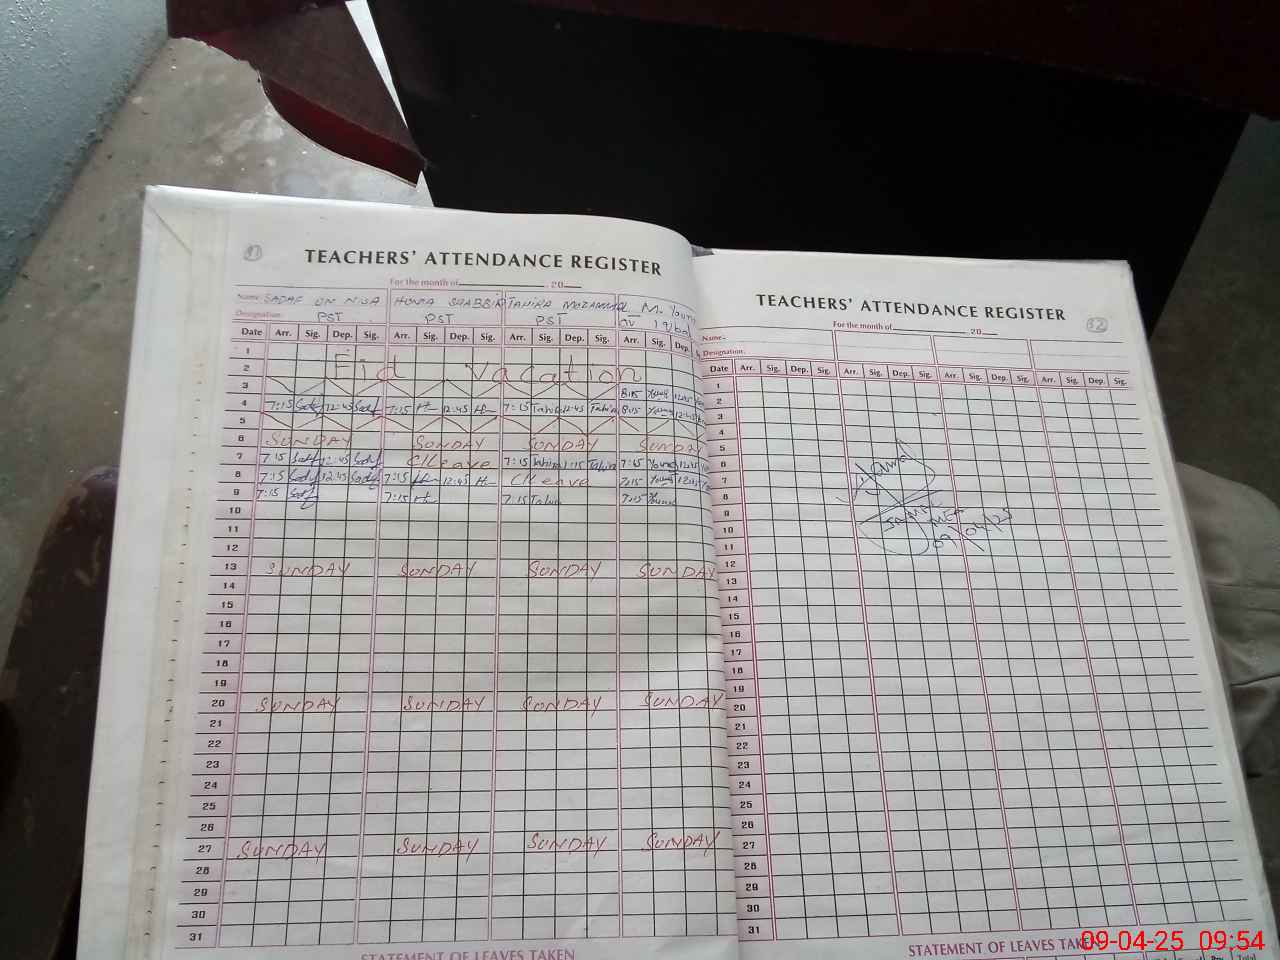 31
TEACHERS' ATTENDANCE REGISTER
For the month of 20
Name: SADAF UN NISA HUMA SHABBIR TAHIRA MUZAMMAL M. Younas
Designation: PST PST PST
Date Arr. Sig. Dep. Sig. Arr. Sig. Dep. Sig. Arr. Sig. Dep. Sig. Arr. Sig. Dep.
1
2 Eid vacation
3 8:15 Younas 12:45
4 7:15 Sadf 12:45 Sadf 7:15 H 12:45 H 7:15 Tahira 12:45 Tahira 8:15 Younas 12:45
5
6 SUNDAY SUNDAY SUNDAY SUNDAY
7 7:15 Sadf 12:45 Sadf C/Leave 7:15 Tahira 1:15 Tahira 7:15 Younas 12:45
8 7:15 Sadf 12:45 Sadf 7:15 H 12:45 H C/Leave 7:15 Younas 12:45
9 7:15 Sadf 7:15 H 7:15 Tahira 7:15 Younas
10
11
12
13 SUNDAY SUNDAY SUNDAY SUNDAY
14
15
16
17
18
19
20 SUNDAY SUNDAY SUNDAY SUNDAY
21
22
23
24
25
26
27 SUNDAY SUNDAY SUNDAY SUNDAY
28
29
30
31
STATEMENT OF LEAVES TAKEN
32
TEACHERS' ATTENDANCE REGISTER
For the month of 20
Name:
Designation:
Date Arr. Sig. Dep. Sig. Arr. Sig. Dep. Sig. Arr. Sig. Dep. Sig. Arr. Sig. Dep. Sig.
1
2
3
4
5
6
7
8
9
10
11
12
13
14
15
16
17
18
19
20
21
22
23
24
25
26
27
28
29
30
31
MEA
09/04/25
STATEMENT OF LEAVES TAKEN
Total
09-04-25 09:54